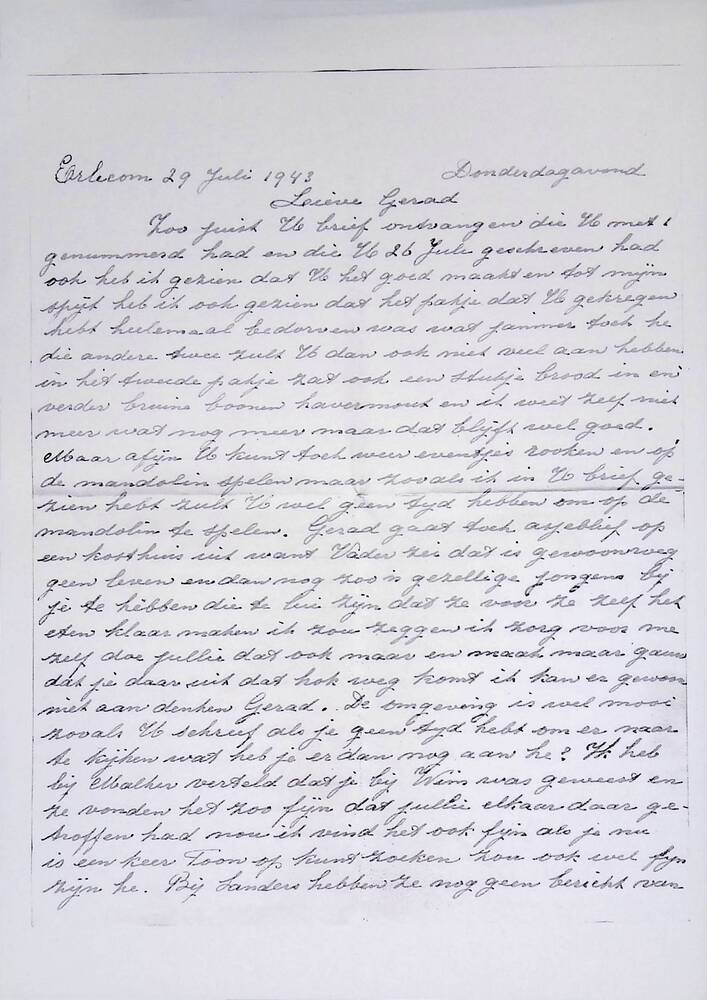 Erlecom 29 Juli 1943 Donderdagavond
Laieve Gerad
Zoo juist U brief ontvangen die U met 1
genummerd had en die U 26 Juli geschreven had
ook heb ik gezien dat U het goed maakt en tot mijn
spijt heb ik ook gezien dat het pakje dat U gekregen
hebt heelemaal bedorven was wat jammer toch he
die andere twee zult U dan ook niet veel aan hebben
in het tweede pakje zat ook een stukje brood in en
verder bruine boonen havermout en ik weet zelf niet
meer wat nog meer maar dat blijft wel goed.
Maar afijn U kunt toch weer eventjes rooken en op
de mandolin spelen maar zooals ik in U brief ge-
zien hebt zult U wel geen tyd hebben om op de
mandolin te spelen. Gerad gaat toch asjeblief op
een kosthuis uit want Vader zei dat is gewoonweg
geen leven en dan nog zoo'n gezellige jongens bij
je te hebben die te lui zijn dat ze voor ze zelf het
eten klaar maken ik zou zeggen ik zorg voor me
zelf doe jullie dat ook maar en maak maar gauw
dat je daar uit dat hok weg komt ik kan er gewoon
niet aan denken Gerad. De omgeving is wel mooi
zooals U schreef als je geen tyd hebt om er naar
te kijken wat heb je er dan nog aan he? Ik heb
bij Malker verteld dat je bij Wim was geweest en
ze vonden het zoo fijn dat jullie elkaar daar ge-
troffen had nou ik vind het ook fijn als je nu
is een keer Toon op kunt zoeken zou ook wel fyn
zijn he. Bij Sanders hebben ze nog geen bericht van